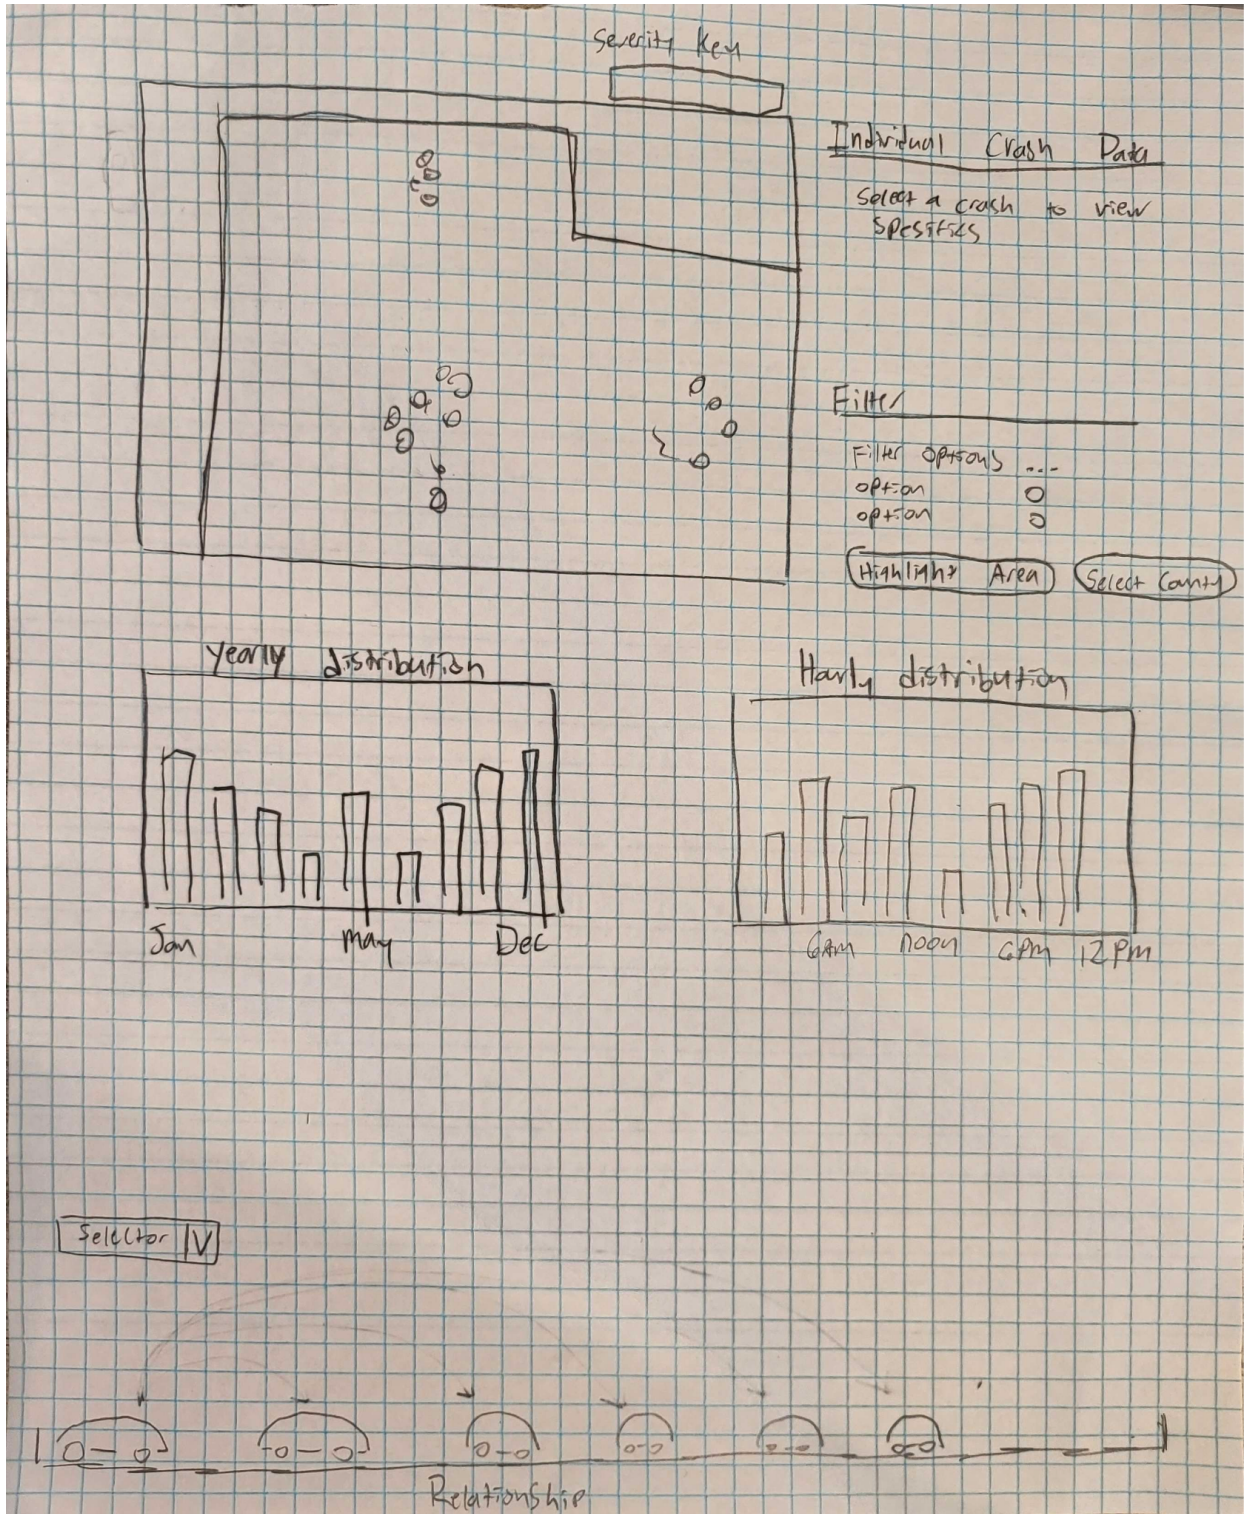 Severity Key
Individual Crash Data
Select a crash to view
spesifics
Filter
Filter options ...
option
option
Highlight Area
Select County
Yearly distribution
Jan May Dec
Harly distribution
6AM noon 6PM 12PM
Selector V
Relationship